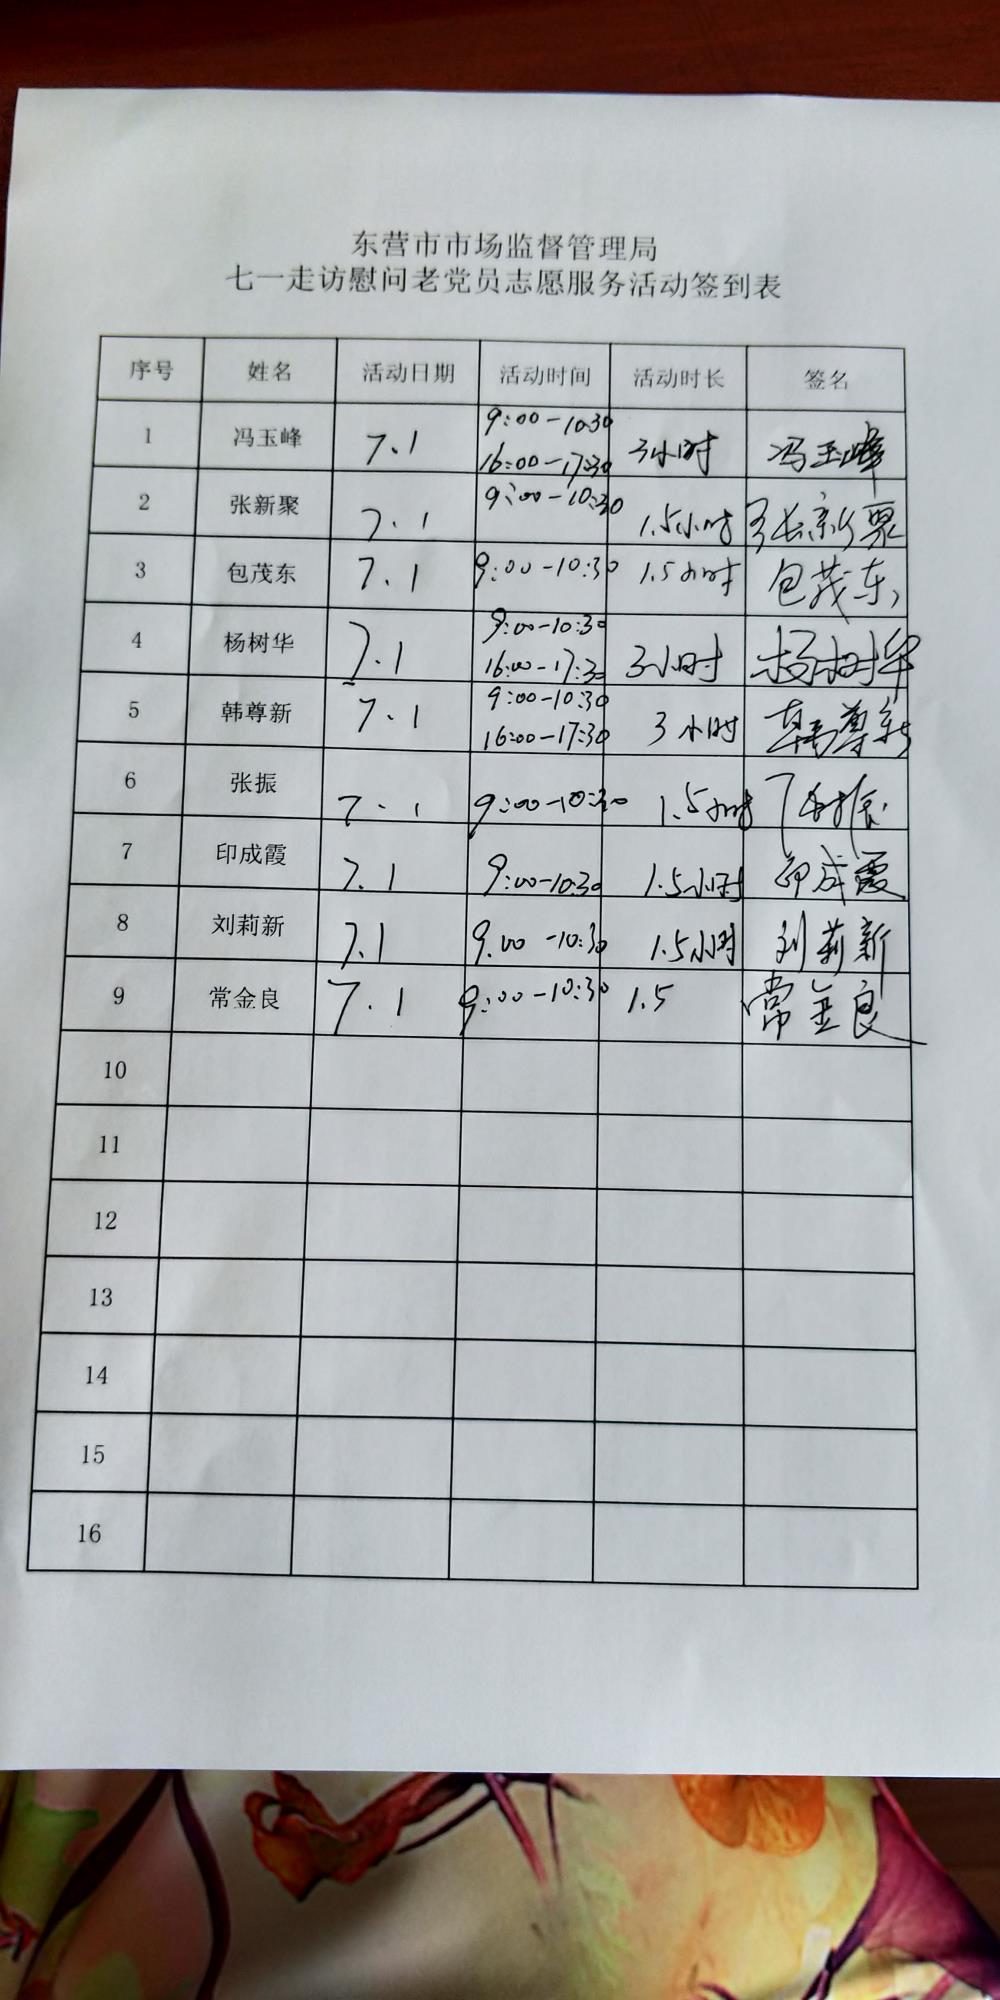 东营市市场监督管理局
七一走访慰问老党员志愿服务活动签到表
序号 姓名 活动日期 活动时间 活动时长 签名
1 冯玉峰 7.1 9:00-10:30 16:00-17:30 3小时 冯玉峰
2 张新聚 7.1 9:00-10:30 1.5小时 张新聚
3 包茂东 7.1 9:00-10:30 1.5小时 包茂东
4 杨树华 7.1 9:00-10:30 16:00-17:30 3小时 杨树华
5 韩尊新 7.1 9:00-10:30 16:00-17:30 3小时 韩尊新
6 张振 7.1 9:00-10:30 1.5小时 张振
7 印成霞 7.1 9:00-10:30 1.5小时 印成霞
8 刘莉新 7.1 9:00-10:30 1.5小时 刘莉新
9 常金良 7.1 9:00-10:30 1.5 常金良
10
11
12
13
14
15
16